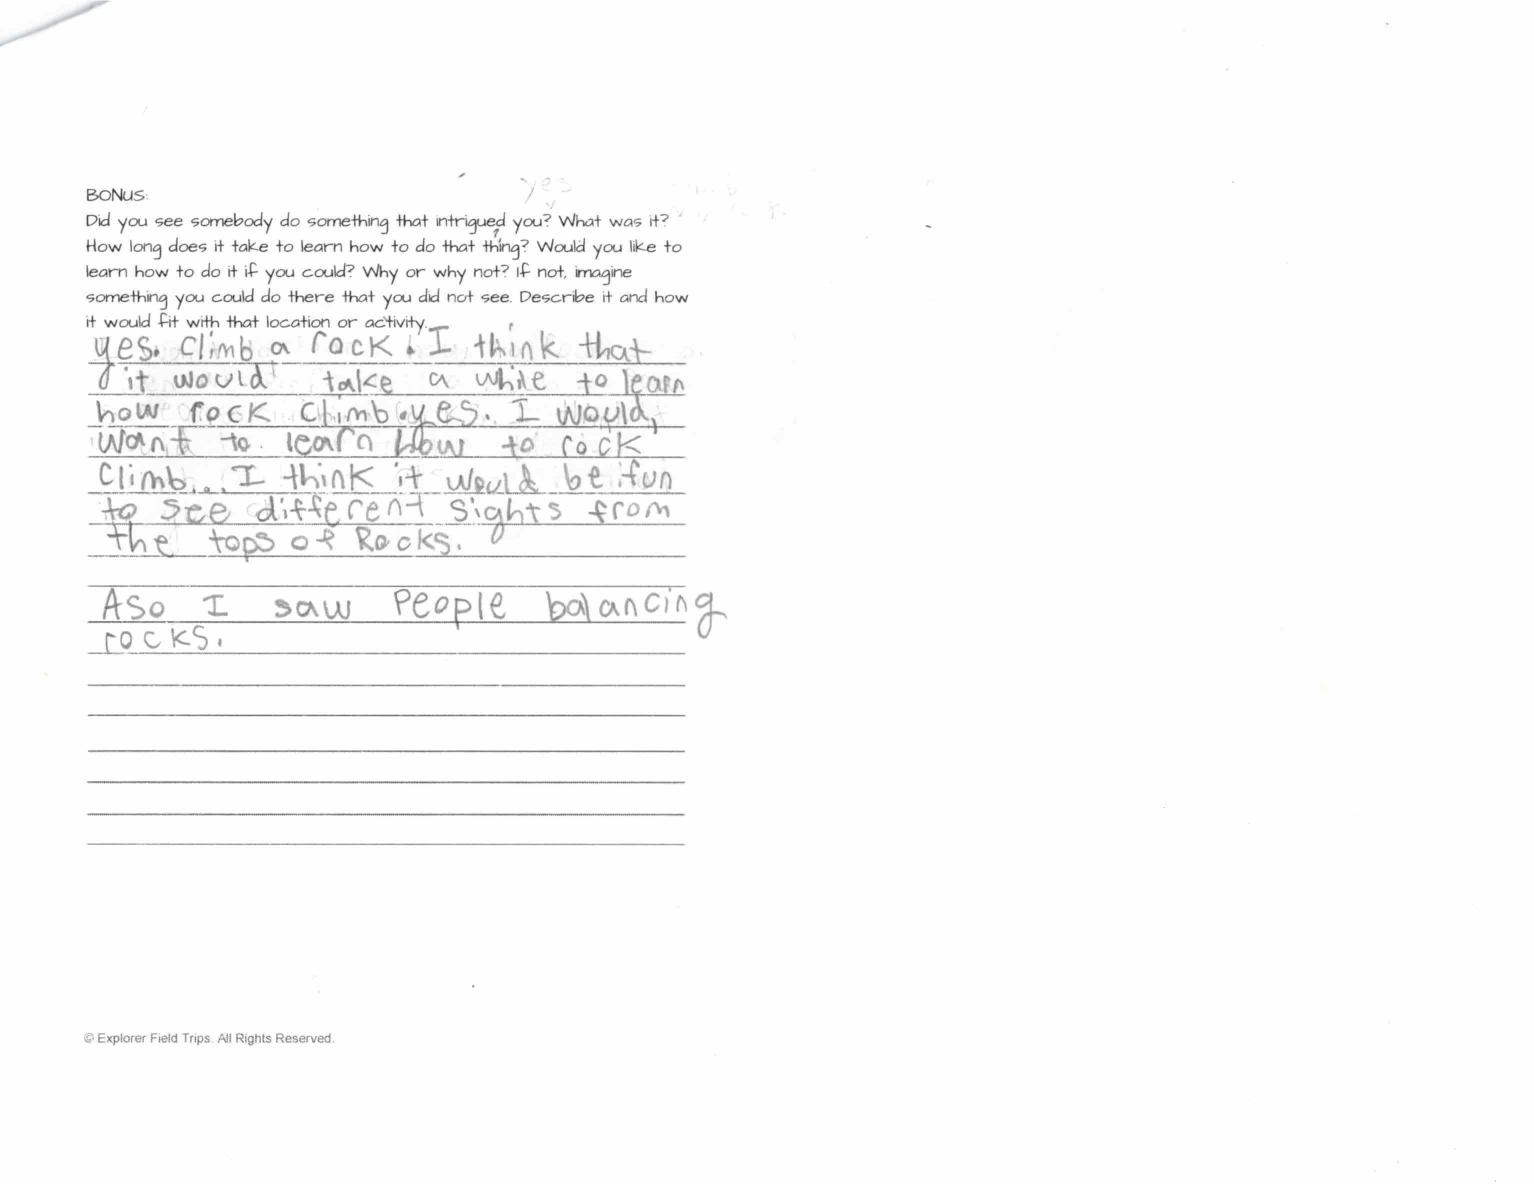 yes
BONUS:
Did you see somebody do something that intrigued you? What was it?
How long does it take to learn how to do that thing? Would you like to
learn how to do it if you could? Why or why not? If not, imagine
something you could do there that you did not see. Describe it and how
it would fit with that location or activity.
yes. Climb a rock. I think that
it would take a while to learn
how rock Climb. yes. I would,
want to learn how to rock
Climb... I think it would be fun
to see different Sights from
the tops of Rocks.
Aso I saw People balancing
rocks.
© Explorer Field Trips. All Rights Reserved.